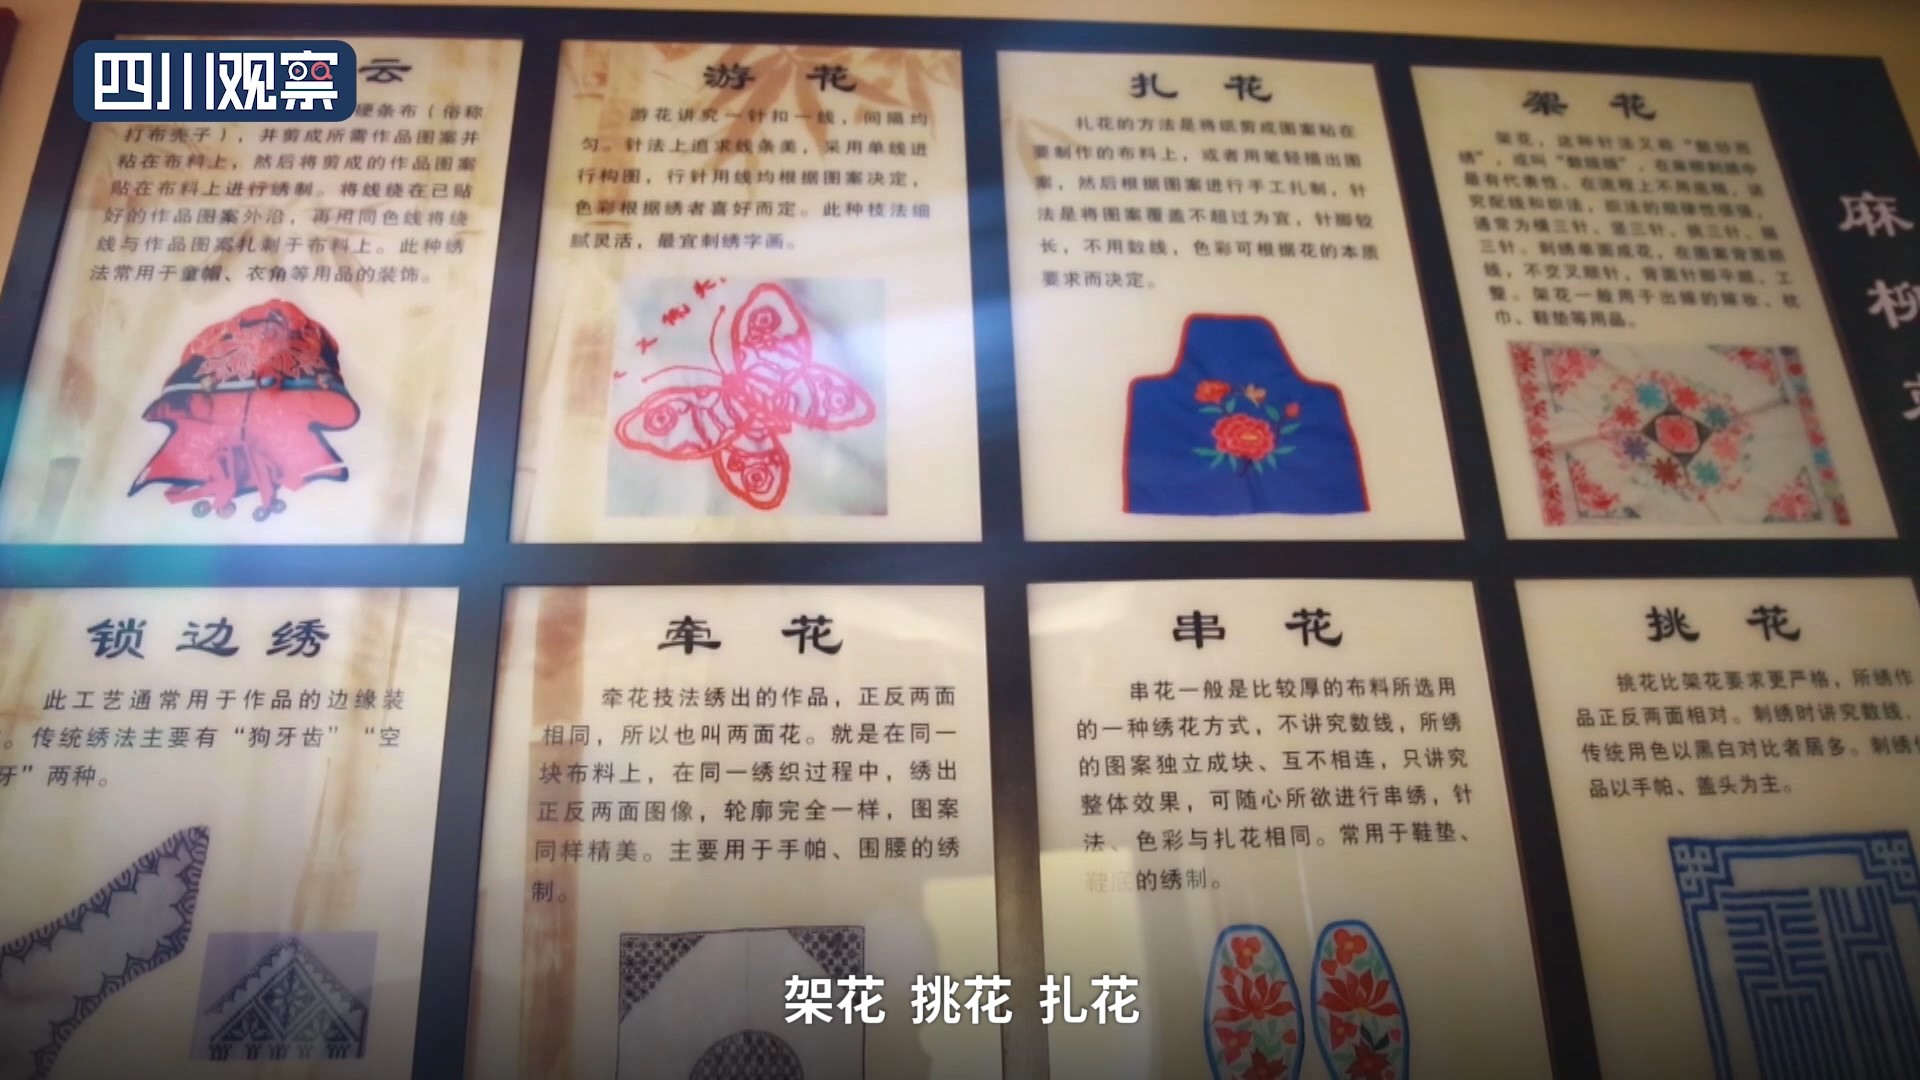 四川观察
云
硬条布（俗称
打布壳子），并剪成所需作品图案并
粘在布料上，然后将剪成的作品图案
贴在布料上进行绣制。将线绕在已贴
好的作品图案外沿，再用同色线将绕
线与作品图案扎刺于布料上。此种绣
法常用于童帽、衣角等用品的装饰。
游花
游花讲究一针扣一线，间隔均
匀。针法上追求线条美，采用单线进
行构图，行针用线均根据图案决定，
色彩根据绣者喜好而定。此种技法细
腻灵活，最宜刺绣字画。
扎花
扎花的方法是将纸剪成图案粘在
要制作的布料上，或者用笔轻描出图
案，然后根据图案进行手工扎制，针
法是将图案覆盖不超过为宜，针脚较
长，不用数线，色彩可根据花的本质
要求而决定。
架花
架花，这种针法又称“数纱而
绣”，或叫“数线绣”，在麻柳刺绣中
最有代表性。在流程上不用底稿，讲
究配线和织法，织法的规律性很强，
通常为横三针、竖三针、挑三针、
三针。刺绣单面成花，在图案背面
线，不交叉眼针，背面针脚平顺、工
整。架花一般用于出嫁的嫁妆、枕
巾、鞋垫等用品。
麻柳
锁边绣
此工艺通常用于作品的边缘装
。传统绣法主要有“狗牙齿”“空
牙”两种。
牵花
牵花技法绣出的作品，正反两面
相同，所以也叫两面花。就是在同一
块布料上，在同一绣织过程中，绣出
正反两面图像，轮廓完全一样，图案
同样精美。主要用于手帕、围腰的绣
制。
串花
串花一般是比较厚的布料所选用
的一种绣花方式，不讲究数线，所绣
的图案独立成块、互不相连，只讲究
整体效果，可随心所欲进行串绣，针
法、色彩与扎花相同。常用于鞋垫、
鞋底的绣制。
挑花
挑花比架花要求更严格，所绣作
品正反两面相对。刺绣时讲究数线，
传统用色以黑白对比者居多。刺绣
品以手帕、盖头为主。
架花 挑花 扎花